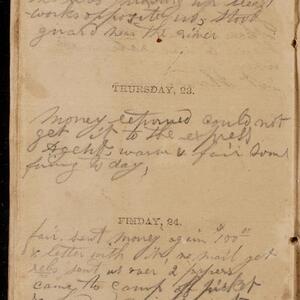 works opposite us, stood
guard near the river
THURSDAY, 23.
Money returned could not
get it to the express
Agent, warm & fair some
firing to day,
FRIDAY, 24.
fair, sent money again $100"
& letter with it, no mail yet
sent us over 2 papers
came to camp off picket